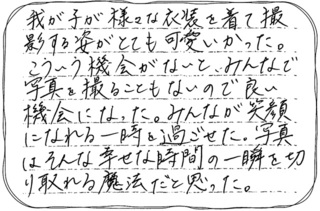 我が子が様々な衣装を着て撮
影する姿がとても可愛いかった。
こういう機会がないと、みんなで
写真を撮ることもないので良い
機会になった。みんなが笑顔
になれる一時を過ごせた。写真
はそんな幸せな時間の一瞬を切
り取れる魔法だと思った。